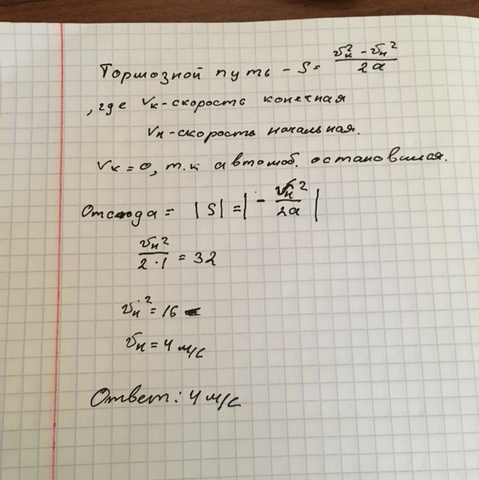 Тормозной путь - S = (v_к² - v_н²)/(2a)
, где v_к - скорость конечная
v_н - скорость начальная.
v_к = 0, т.к автомоб. остановился.
Отсюда = |S| = |- v_н²/(2a)|
v_н²/(2·1) = 32
v_н² = 16
v_н = 4 м/с
Ответ: 4 м/с